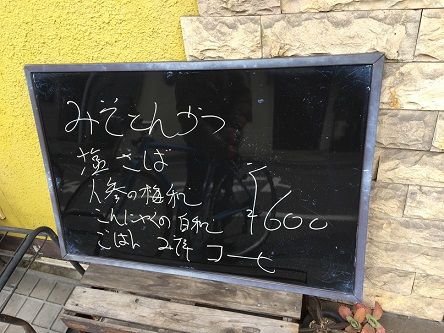 みそとんかつ
塩さば
人参の梅和
こんにゃくの白和
ごはん みそ汁 コーヒ
¥600